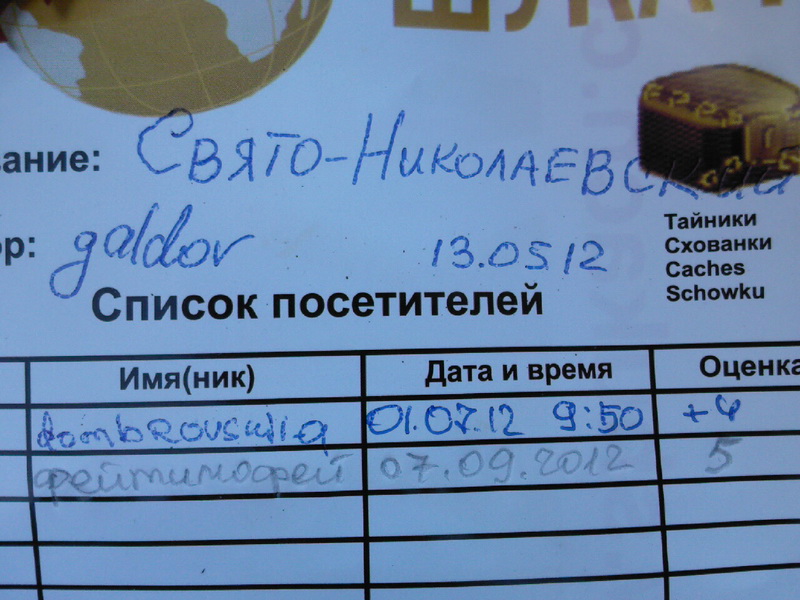 ШУКА
вание: Свято-Николаевский
ор: galdor 13.0512
Тайники
Схованки
Caches
Schowku
Список посетителей
Имя(ник) Дата и время Оценка
dombrovskiq 01.07.12 9:50 +4
фейтимофей 07.09.2012 5